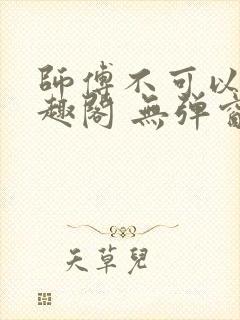 師傅不可以
趣閣 無彈
天草兒